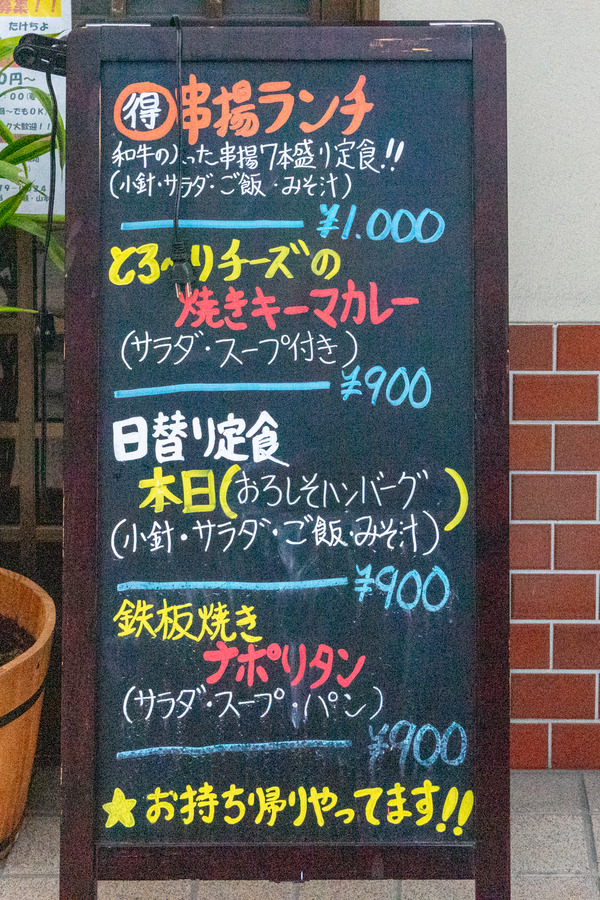 募集！！
たけちよ
得 串揚ランチ
和牛の入った串揚7本盛り定食!!
(小針・サラダ・ご飯・みそ汁)
¥1.000
とろ〜りチーズの
焼きキーマカレー
(サラダ・スープ付き)
¥900
日替り定食
本日(おろしそハンバーグ)
(小針・サラダ・ご飯・みそ汁)
¥900
鉄板焼き
ナポリタン
(サラダ・スープ・パン)
¥900
★お持ち帰りやってます!!